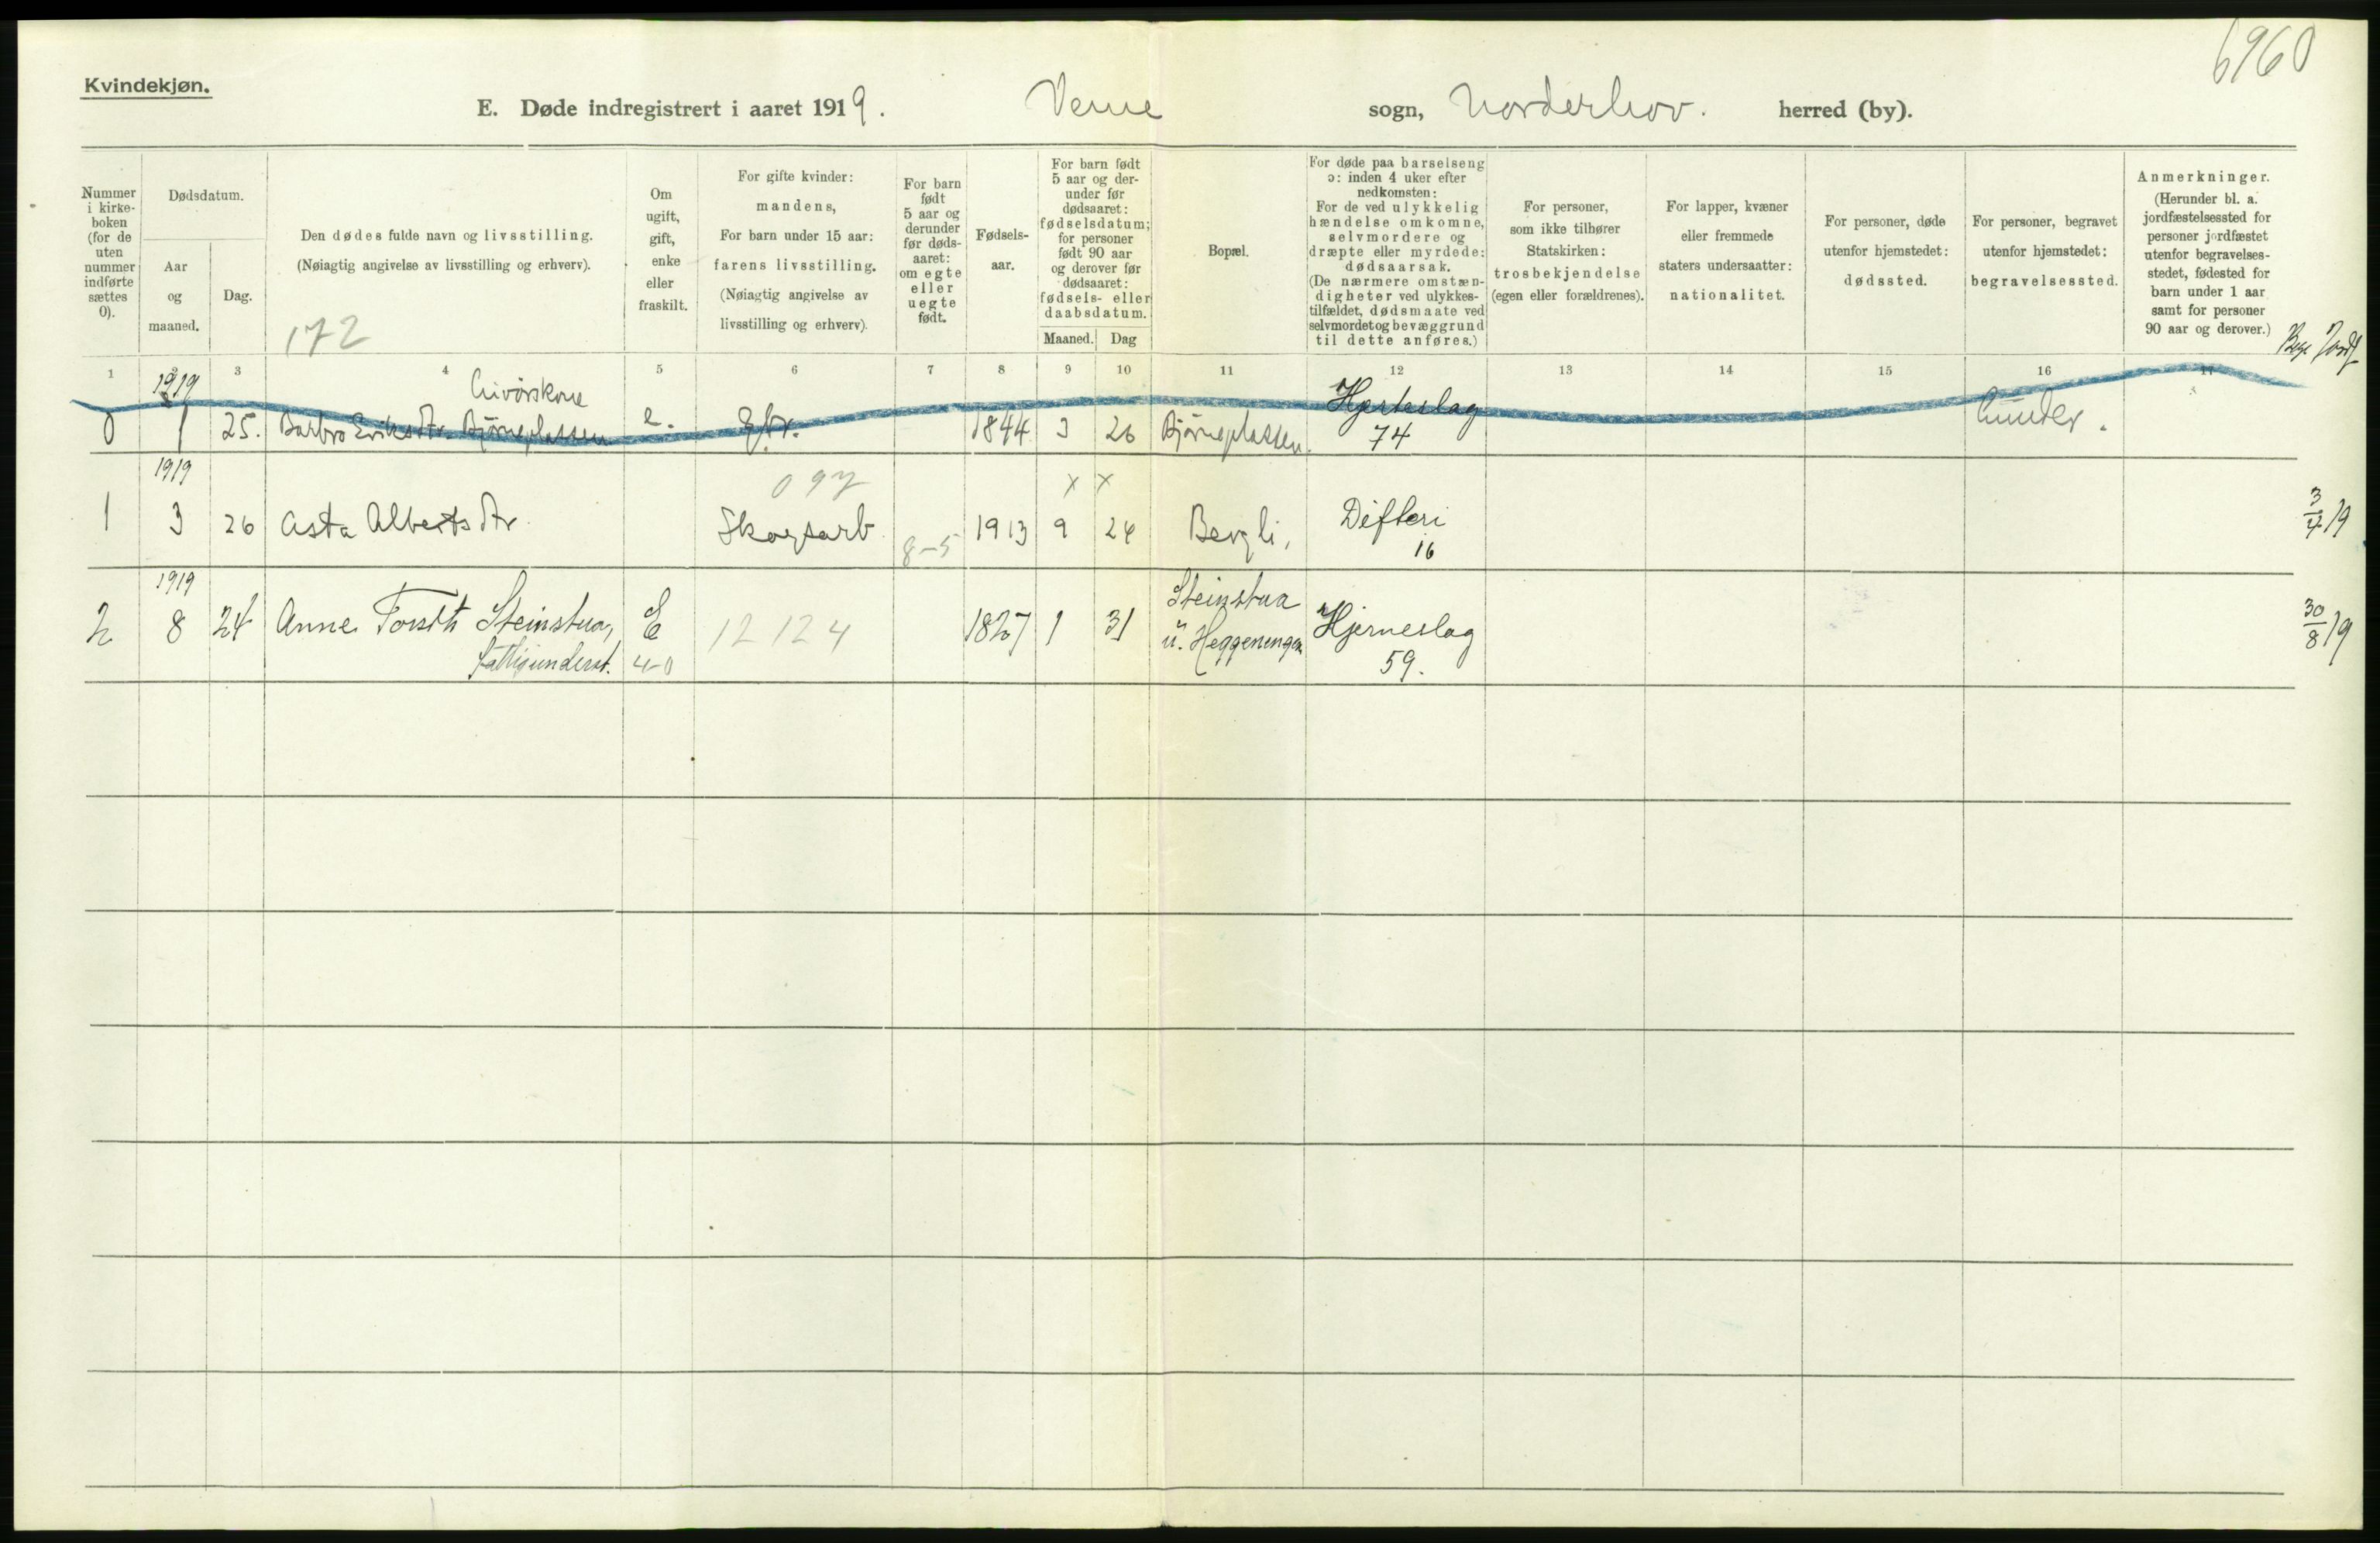 6960
Kvindekjøn.
E. Døde indregistrert i aaret 1919. Veme sogn, Norderhov. herred (by).
Nummer i kirke-boken (for de uten nummer indførte sættes 0).
Dødsdatum.
Aar og maaned.
Dag.
Den dødes fulde navn og livsstilling.
(Nøiagtig angivelse av livsstilling og erhverv).
172
Om ugift, gift, enke eller fraskilt.
For gifte kvinder:
mandens,
For barn under 15 aar:
farens livsstilling.
(Nøiagtig angivelse av
livsstilling og erhverv).
For barn født 5 aar og derunder før døds-aaret: om egte eller uegte født.
Fødsels-aar.
For barn født 5 aar og der-under før dødsaaret: fødselsdatum; for personer født 90 aar og derover før dødsaaret: fødsels- eller daabsdatum.
Maaned. Dag
Bopæl.
For døde paa barselseng
ɔ: inden 4 uker efter
nedkomsten:
For de ved ulykkelig
hændelse omkomne,
selvmordere og
dræpte eller myrdede:
dødsaarsak.
(De nærmere omstæn-
digheter ved ulykkes-
tilfældet, dødsmaate ved
selvmordet og bevæggrund
til dette anføres.)
For personer,
som ikke tilhører
Statskirken:
trosbekjendelse
(egen eller forældrenes).
For lapper, kvæner
eller fremmede
staters undersaatter:
nationalitet.
For personer, døde
utenfor hjemstedet:
dødssted.
For personer, begravet
utenfor hjemstedet:
begravelsessted.
Anmerkninger.
(Herunder bl. a.
jordfæstelsessted for
personer jordfæstet
utenfor begravelses-
stedet, fødested for
barn under 1 aar
samt for personer
90 aar og derover.)
1 2 3 4 5 6 7 8 9 10 11 12 13 14 15 16 17
1919
0 1 25. Barbro Eriksdtr. Bjørneplassen e. 1844 3 26 Bjørneplassen. Hjerteslag
74
1919
097 x x
1 3 26 Asta Albertsdtr Skogsarb. 8-5 1913 9 24 Bergli, Difteri 3/4 19
16
1919
2 8 24 Anne Torsdt Steinstua, E 12 12 4 1827 1 31 Steinstua Hjerneslag 30/8 19
fattigunderst. 4-0 u. Heggeningen 59.